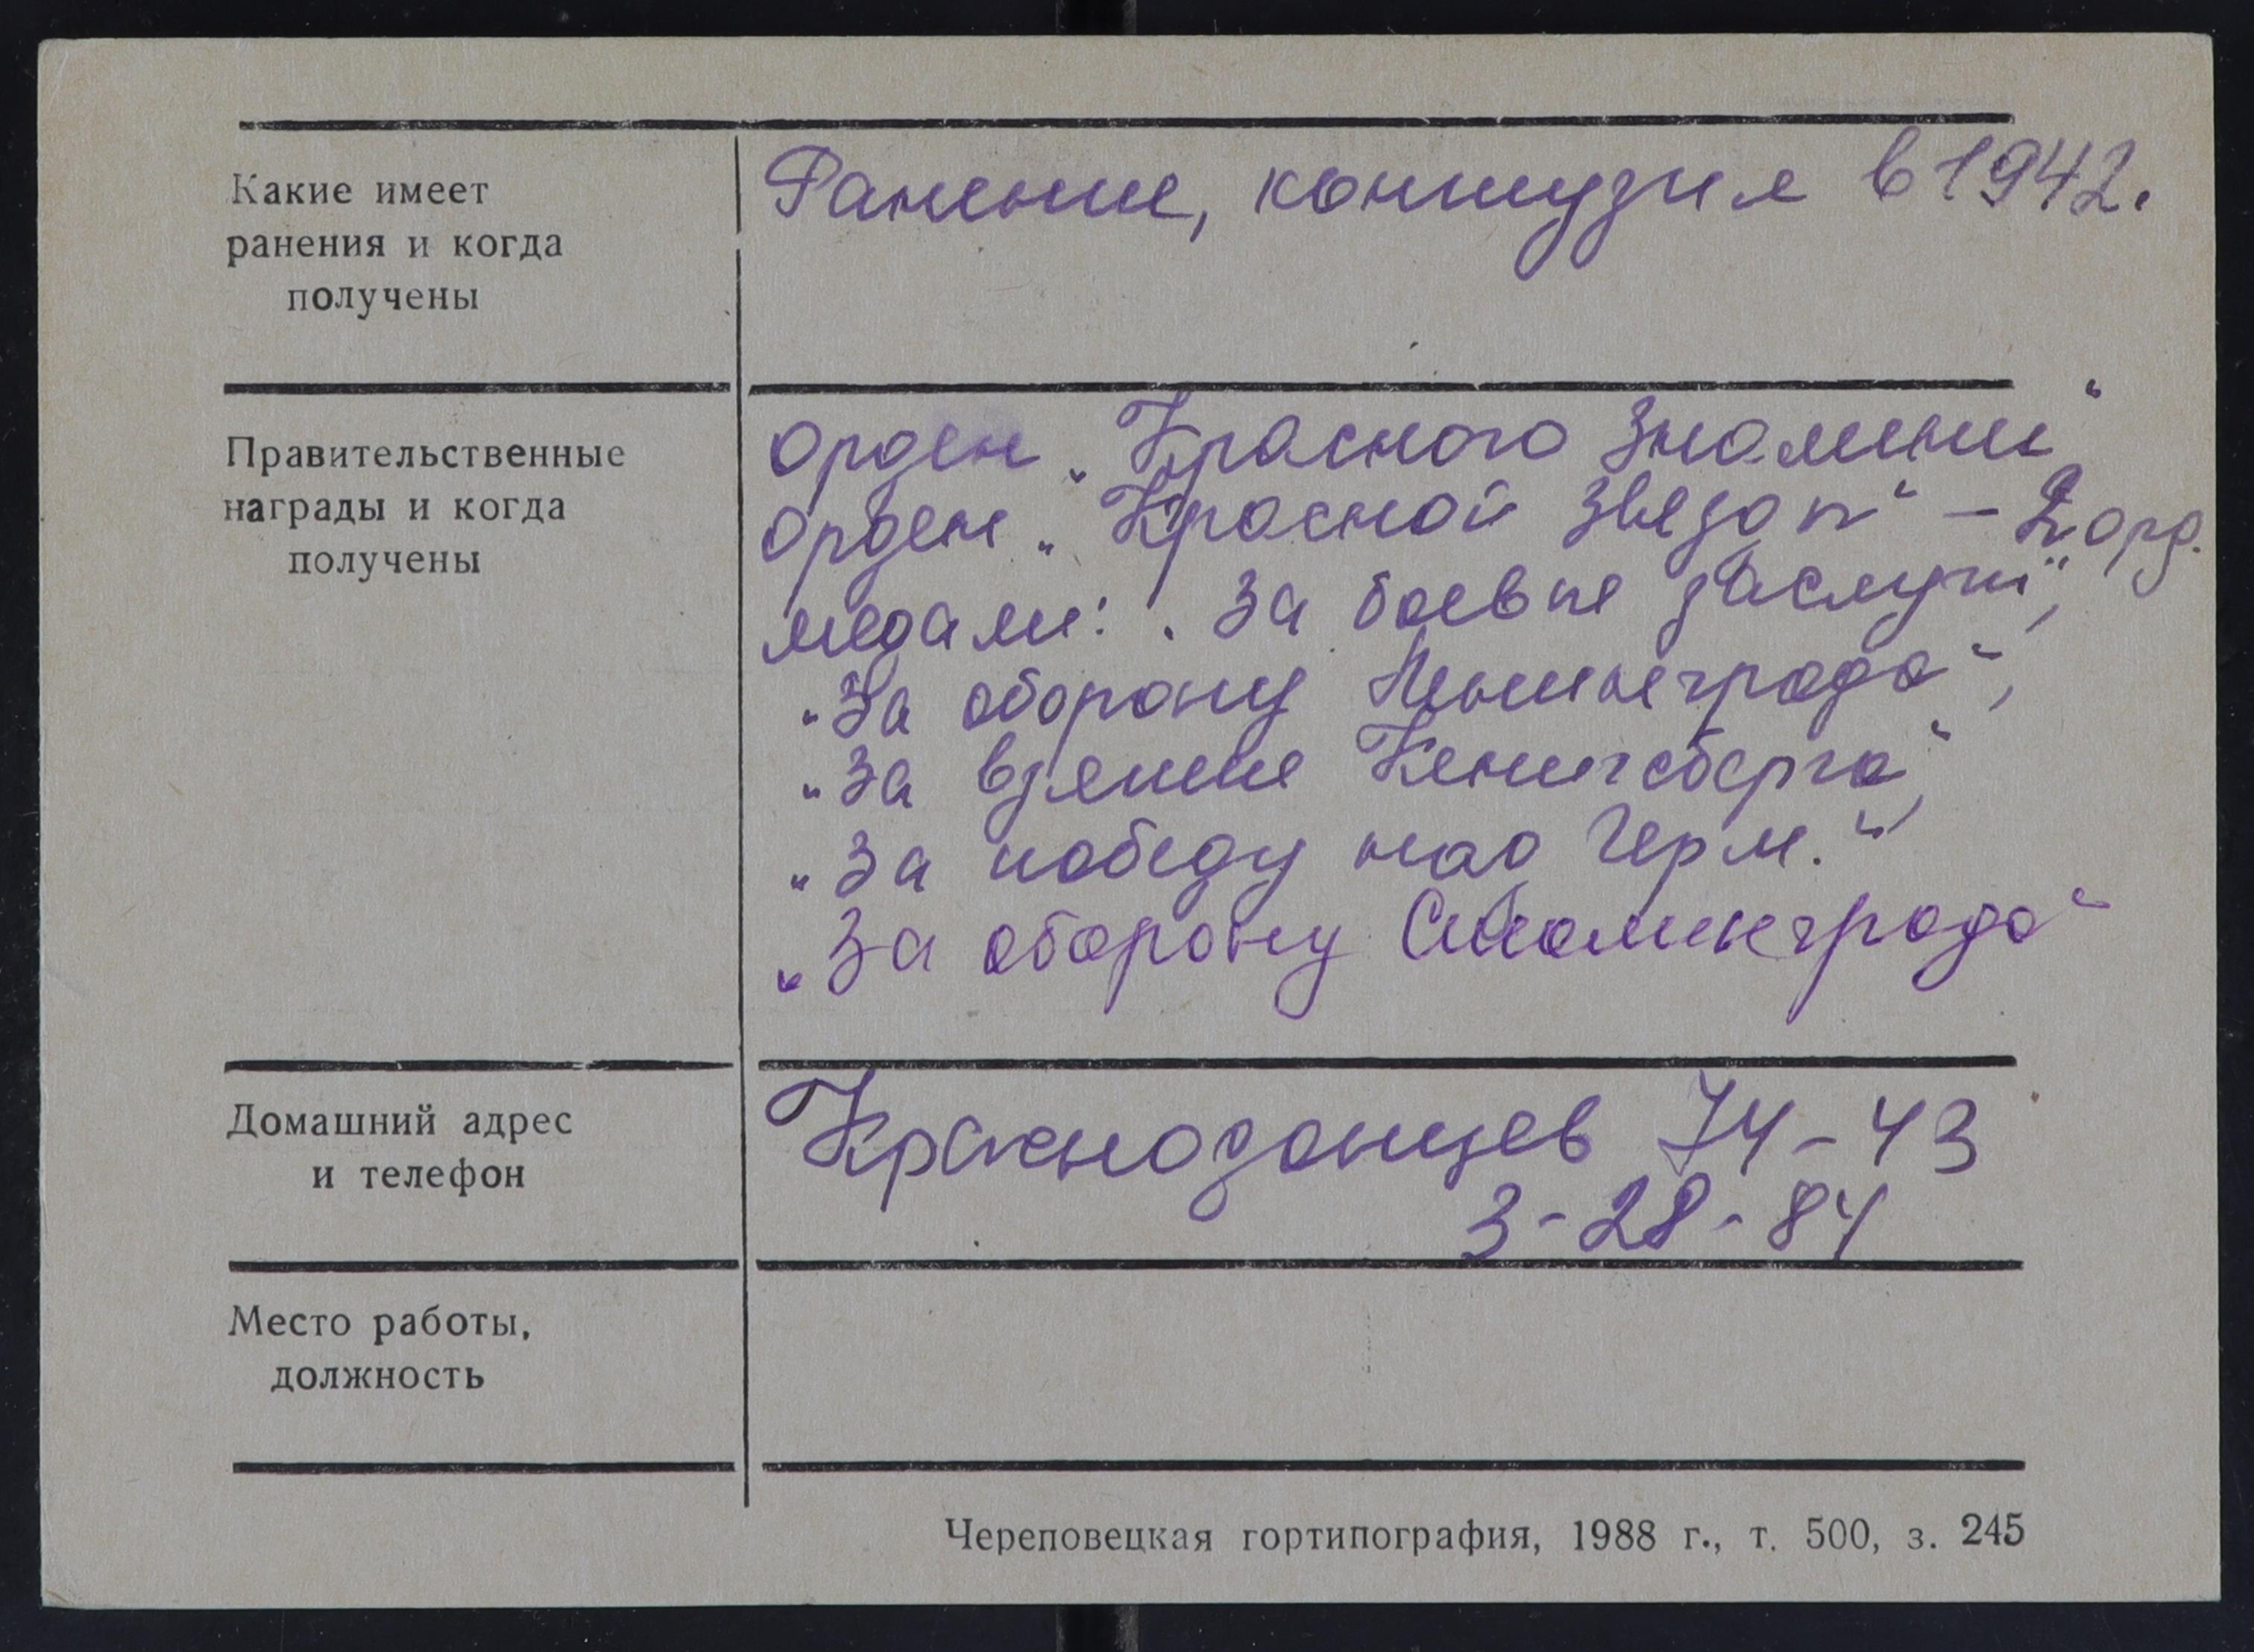 Какие имеет
ранения и когда
получены
Ранение, контузия в 1942.
Правительственные
награды и когда
получены
орден „Красного Знамени“
орден „Красной Звезды“ – 2 орд.
медали: „За боевые заслуги“,
„За оборону Ленинграда“,
„За взятие Кенигсберга“,
„За победу над Герм.“,
„За оборону Сталинграда“
Домашний адрес
и телефон
Краснодонцев 74-43
3-28-84
Место работы,
должность
Череповецкая гортипография, 1988 г., т. 500, з. 245